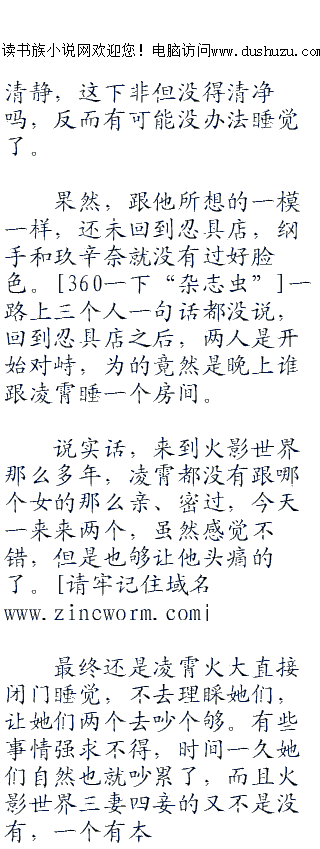 读书族小说网欢迎您！电脑访问www.dushuzu.com
清静，这下非但没得清净
吗，反而有可能没办法睡觉
了。
果然，跟他所想的一模
一样，还未回到忍具店，纲
手和玖辛奈就没有过好脸
色。[360一下“杂志虫”]一
路上三个人一句话都没说，
回到忍具店之后，两人是开
始对峙，为的竟然是晚上谁
跟凌霄睡一个房间。
说实话，来到火影世界
那么多年，凌霄都没有跟哪
个女的那么亲、密过，今天
一来来两个，虽然感觉不
错，但是也够让他头痛的
了。[请牢记住域名
www.zincworm.com|
最终还是凌霄火大直接
闭门睡觉，不去理睬她们，
让她们两个去吵个够。有些
事情强求不得，时间一久她
们自然也就吵累了，而且火
影世界三妻四妾的又不是没
有，一个有本